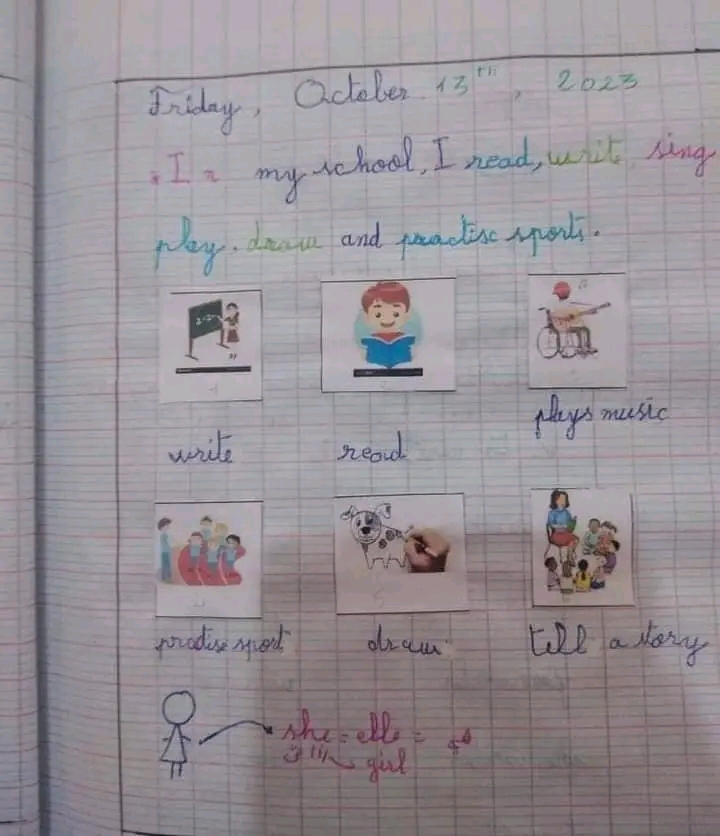 Friday, October 13th, 2023
. In my school, I read, write, sing
play, draw and practise sports.
plays music
write read
practise sport draw tell a story
she = elle =
girl